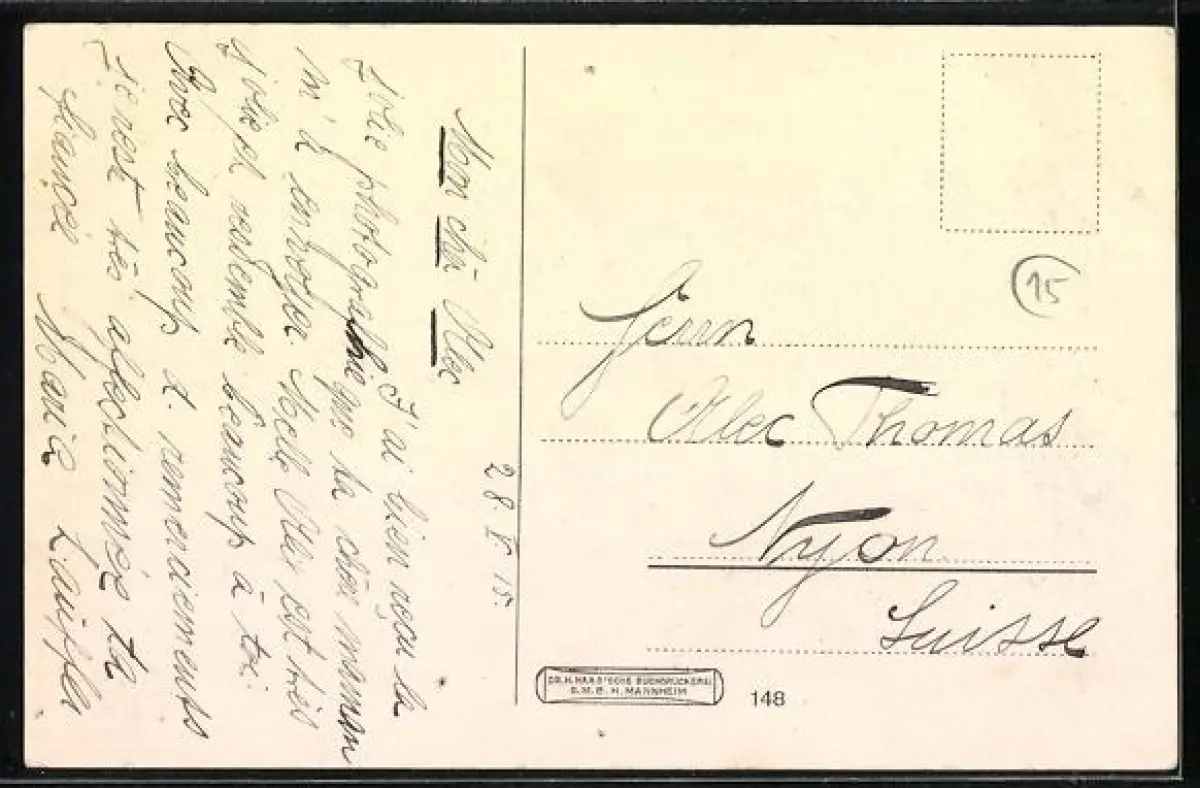 28. V 15.
Mon chér Alec
J'ai bien reçu la
jolie photographie que ta chère maman
m'a envoyer. Melle Alix est très
jolie et resemble beaucoup à toi.
Avec beaucoup d. remerciements
je rest très affectionnée ta
fiancée
Marie Lauffer
15
Herrn
Alec Thomas
Nyon
Suisse
DR. H. HAAS'SCHE BUCHDRUCKEREI
G.M.B.H. MANNHEIM
148